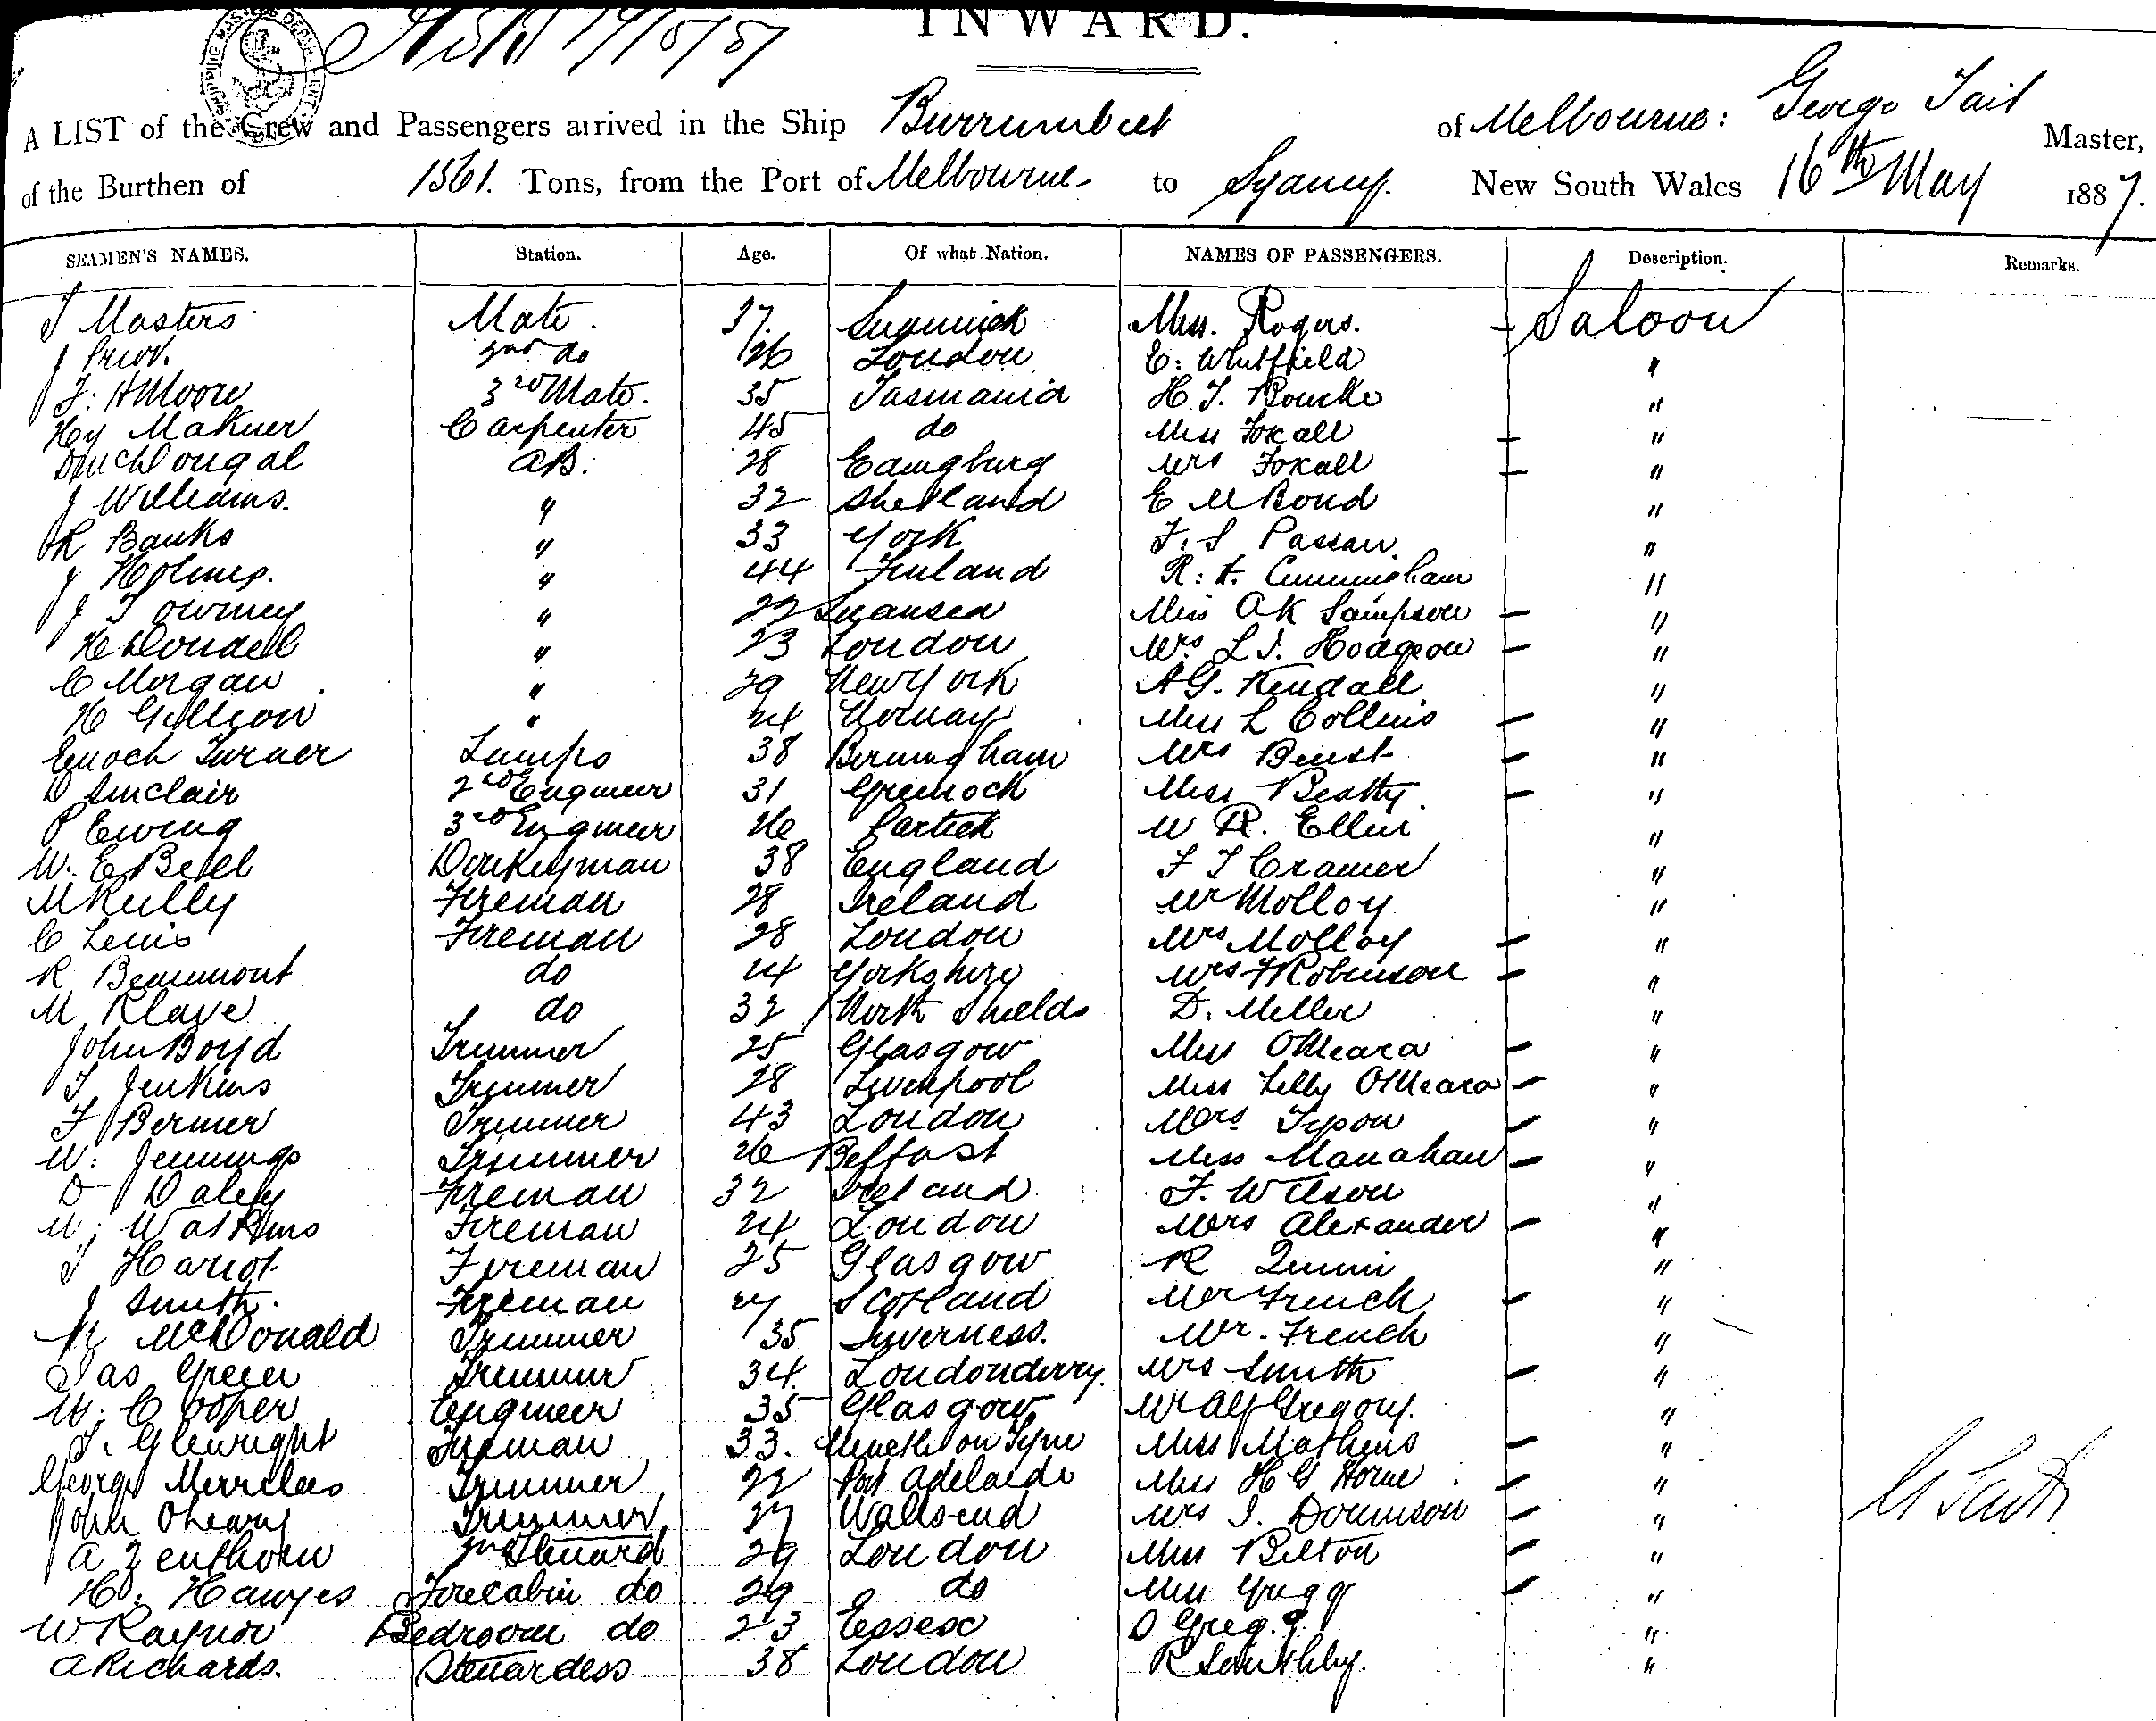 INWARD.
A LIST of the Crew and Passengers arrived in the Ship Burrumbeet of Melbourne: George Tait Master,
of the Burthen of 1561. Tons, from the Port of Melbourne to Sydney. New South Wales 16th May 1887.
SEAMEN'S NAMES. Station. Age. Of what Nation. NAMES OF PASSENGERS. Description. Remarks.
J Masters Mate. 37. Miss. Rogers. Saloon
J Prior. 2nd do 26 London E. Whitfield "
F. H Moore 3rd Mate. 35 Tasmania H. T. Bourke "
Hy Makner Carpenter 45 do Miss Foxall "
D McDougal AB. 28 Edingburg Mrs Foxall "
J Williams. " 32 Shetland E M Bond "
R Banks " 33 York F. S "
J Holmes. " 44 Finland R. A. Cunningham "
J Towney " 22 Swansea Miss A K Sampson "
H Dondell " 23 London Mrs. L. J. Hodgson "
C Morgan " 29 New York A G. Kendall "
H " 24 Norway Miss L Collins "
Enoch Turner Lamps 38 Birmingham Mrs Beust "
D Sinclair 2nd Engineer 31 Greenock Miss Beatty "
P Ewing 3rd Engineer 26 Partick W R. Ellis "
W. E Bell Donkeyman 38 England F J Cramer "
M Kelly Fireman 28 Ireland Mr Molloy "
C Lewis Fireman 28 London Mrs Molloy "
R Beaumont do 24 Yorkshire Mrs F Robinson "
M Klave do 32 North Shields D. Miller "
John Boyd Trimmer 25 Glasgow Miss OMeara "
T Jenkins Trimmer 28 Liverpool Miss Lilly OMeara "
F Bermer Trimmer 43 London Mrs Tyson "
W. Jennings Trimmer 26 Belfast Miss Manahan "
D Daley Fireman 32 Ireland F. Wilson "
W. Watkins Fireman 24 London Mrs Alexander "
J Hariot Fireman 25 Glasgow R Quinn "
J Smith. Fireman 27 Scotland Mrs French "
McDonald Trimmer 35 Inverness. Mr. French "
Jas Greer Trimmer 34. Londonderry. Mrs Smith "
W. Cooper Engineer 35 Glasgow Mr Alf Gregory. "
J. Glewright Fireman 33. on Tyne Miss Mathews "
George Merrilees Trimmer 22 Port Adelaide Miss H G Horne "
John OLeary Trimmer 27 Wallsend Mrs J. "
A Zenthoen 2nd Steward 29 London Miss Bilton "
H. Hawyes Forecabin do 29 do Miss Grigg "
W Raynor Bedroom do 23 Essex O "
A Richards. Stewardess 38 London R Southby. "
G Tait